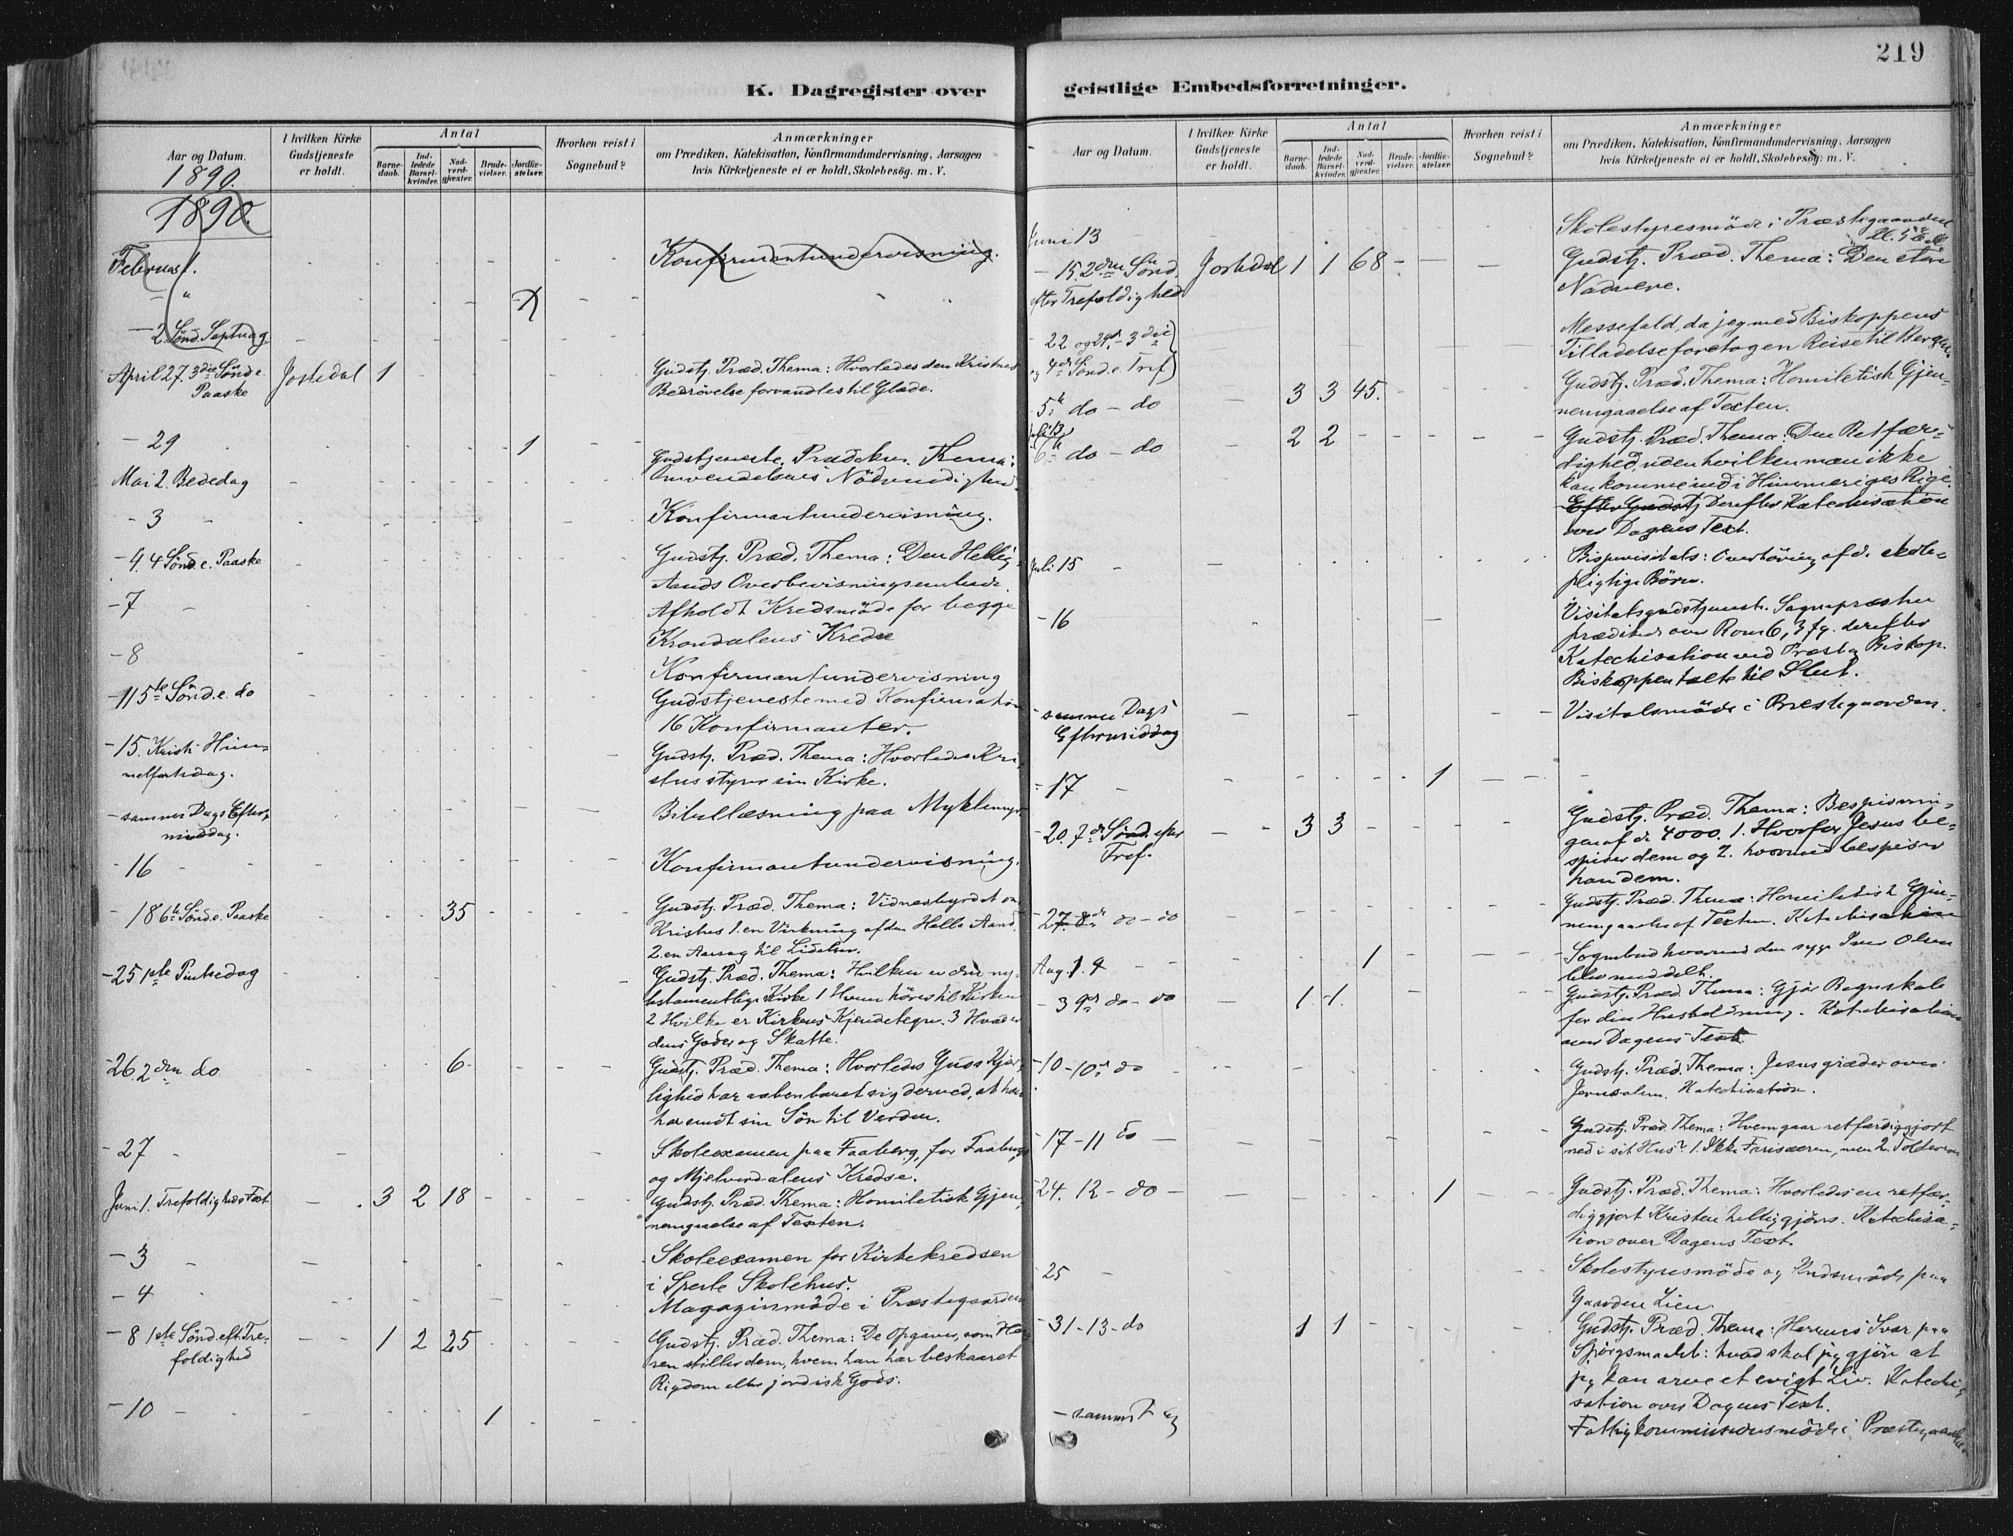 219
K. Dagregister over geistlige Embedsforretninger.
Aar og Datum.
1890.
I hvilken Kirke
Gudstjeneste
er holdt.
Antal
Barne-
daab.
Ind-
ledede
Barsel-
kvinder.
Nad-
verd-
gjæster.
Brude-
vielser.
Jordfæ-
stelser.
Hvorhen reist i
Sognebud?
Anmærkninger
om Prædiken, Katekisation, Konfirmandundervisning, Aarsagen
hvis Kirketjeneste ei er holdt, Skolebesøg. m. V.
1890.
Februar 1. Konfirmantundervisning.
- "
- 2 Sønd. Septuag
April 27. 3die Sønd e. Paaske Jostedal 1 Gudstj. Præd. Thema: Hvorledes den Kristnes
Bedrøvelse forvandles til Glæde.
- 29 1
Mai 2. Bededag Gudstjeneste. Prædiken. Thema:
Omvendelsens Nødvendighed.
- 3 Konfirmantundervisning.
- 4. 4 Sønd. e. Paaske Gudstj. Præd. Thema: Den Hellig
Aands Overbevisningsembede.
- 7 Afholdt Kredsmöde for begge
Krondalens Kredse
- 8 Konfirmantundervisning
- 11 5te Sönd. e. do Gudstjeneste med Konfirmation
16 Konfirmanter.
- 15. Kristi Him-
melfartsdag. Gudstj. Præd. Thema: Hvorledes Kri-
stus styrer sin Kirke.
- samme Dags Efter-
middag. Bibellæsning paa Myklemyr
- 16 Konfirmantundervisning.
- 18 6te Sönd e. Paaske 35 Gudstj. Præd. Thema: Vidnesbyrdet om
Kristus 1. en Virkning af den Hellig Aand.
2. en Aarsag til Lidelser.
- 25 1ste Pintsedag Gudstj. Præd. Thema: Hvilken er den ny-
testamentlige Kirke 1 Hvem hörer til Kirken
2 Hvilke er Kirkens Kjendetegn. 3 Hvad er
dens Goder og Skatte.
- 26 2den do 6 Gudstj. Præd. Thema: Hvorledes Guds Kjær-
lighed har aabenbaret sig derved, at han
har sendt sin Sön til Verden.
- 27 Skoleexamen paa Faaberg, for Faabergs
og Mjelverdalens Kredse.
Juni 1. Trefoldigheds Fest 3 2 18 Gudstj. Præd. Thema: Homiletisk Gjen-
nemgaaelse af Texten.
- 3 Skoleexamen for Kirkekredsen
i Sperle Skolehus.
- 4 Magazinmöde i Præstegaarden
- 8 1ste Sönd. eft. Tre-
foldighed 1 2 25 Gudstj. Præd. Thema: De Opgaver, som Her-
ren stiller dem, hvem han har beskaaret
Rigdom eller jordisk Gods.
- 10 1
Aar og Datum.
I hvilken Kirke
Gudstjeneste
er holdt.
Antal
Barne-
daab.
Ind-
ledede
Barsel-
kvinder.
Nad-
verd-
gjæster.
Brude-
vielser.
Jordfæ-
stelser.
Hvorhen reist i
Sognebud?
Anmærkninger
om Prædiken, Katekisation, Konfirmandundervisning, Aarsagen
hvis Kirketjeneste ei er holdt, Skolebesøg. m. V.
Juni 13 Skolestyresmöde i Præstegaarden
- 15. 2den Sönd. Jostedal 1 1 68 Gudstj. Præd. Thema: Den store
efter Trefoldighed Nadvere.
- 22 og 29de 3die
og 4de Sönd e. Tref Messefald, da jeg med Biskoppens
Tilladelse foretog en Reise til Bergen.
- 5te do - do 3 3 45. Gudstj. Præd. Thema: Homiletisk Gjen-
nemgaaelse af Texten.
Juli 13
6te do - do 2 2 Gudstj. Præd. Thema: Den Retfær-
dighed, uden hvilken man ikke
kan komme ind i Himmeriges Rige.
Efter Gudstj Derefter Katechisation
over Dagens Text.
Juli 15 Bispevisitats: Overhöring af de skole-
pligtige Börn.
- 16 Visitatsgudstjeneste. Sognepræsten
prædiked over Rom 6, 3 fg. derefter
Katechisation ved Præst og Biskop.
Biskoppen talte til Slut.
- samme Dags
Eftermiddag Visitatsmöde i Prestegaarden.
- 17 1
- 20. 7de Sönd. efter
Tref. 3 3 Gudstj. Præd. Thema: Bespisnin-
gen af de 4000. 1. Hvorfor Jesus be-
spiser dem og 2. hvormed bespiser
han dem.
- 27. 8de do - do Gudstj. Præd. Thema: Homiletisk Gjen-
nemgaaelse af Texten. Katechisation
Aug. 1. 1 Sognebud hvorved den syge Iver Olsen
blev meddelt.
- 3 9de do - do 1 1. Gudstj. Præd. Thema: Gjör Regnskab
for din Husholdning. Katechisation
over Dagens Text.
- 10 - 10de do Gudstj. Præd. Thema: Jesus græder over
Jerusalem. Katechisation.
- 17 - 11 do Gudstj. Præd. Thema: Hvem gaar retfærdiggjort
ned i sit Hus? 1. Ikke Farisæeren, men 2. Tolderen
- 24. 12 - do 1 Gudstj. Præd. Thema: Hvorledes en retfær-
diggjort Kristen helliggjöres. Katechisa-
tion over Dagens Text.
- 25 Skolestyresmöde og Kredsmöde paa
Gaarden Lien.
- 31 - 13 - do 1 1 Gudstj. Præd. Thema: Herrens Svar paa
Spörgsmaalet: hvad skal jeg gjöre at
jeg kan arve et evigt Liv. Katechi-
sation over Dagens Text.
- samme Dag Fattigkommissionsmöde i Præstegaarden